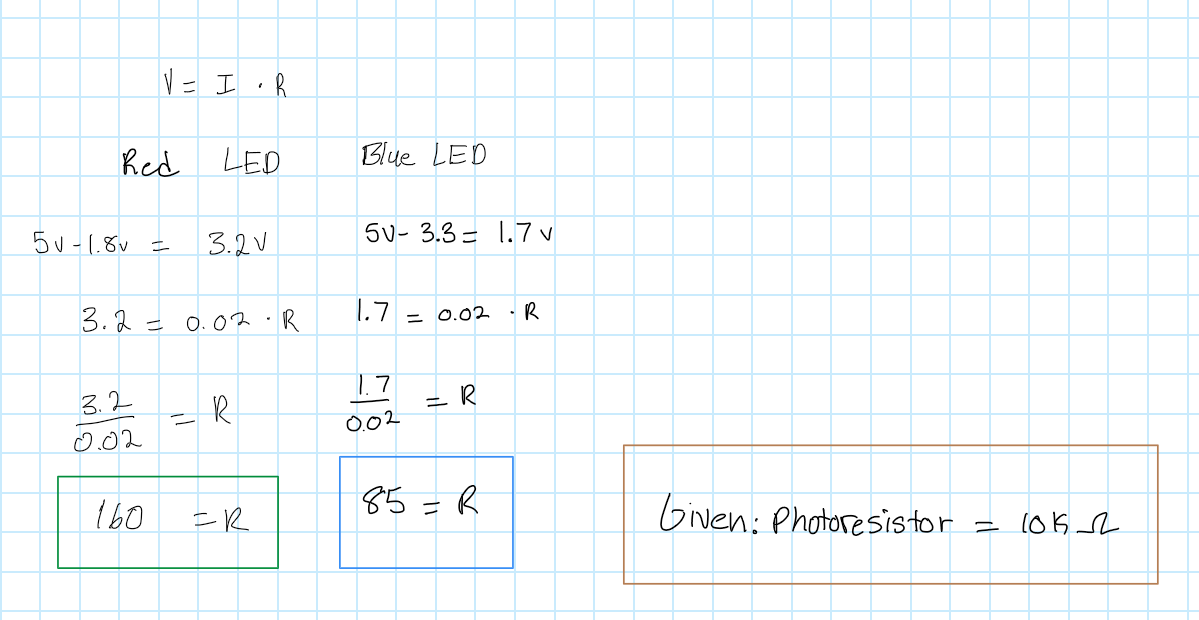 V = I · R
Red LED
5v - 1.8v = 3.2V
3.2 = 0.02 · R
3.2
0.02
= R
160 = R
Blue LED
5V - 3.3 = 1.7 v
1.7 = 0.02 · R
1.7
0.02
= R
85 = R
Given: Photoresistor = 10K Ω